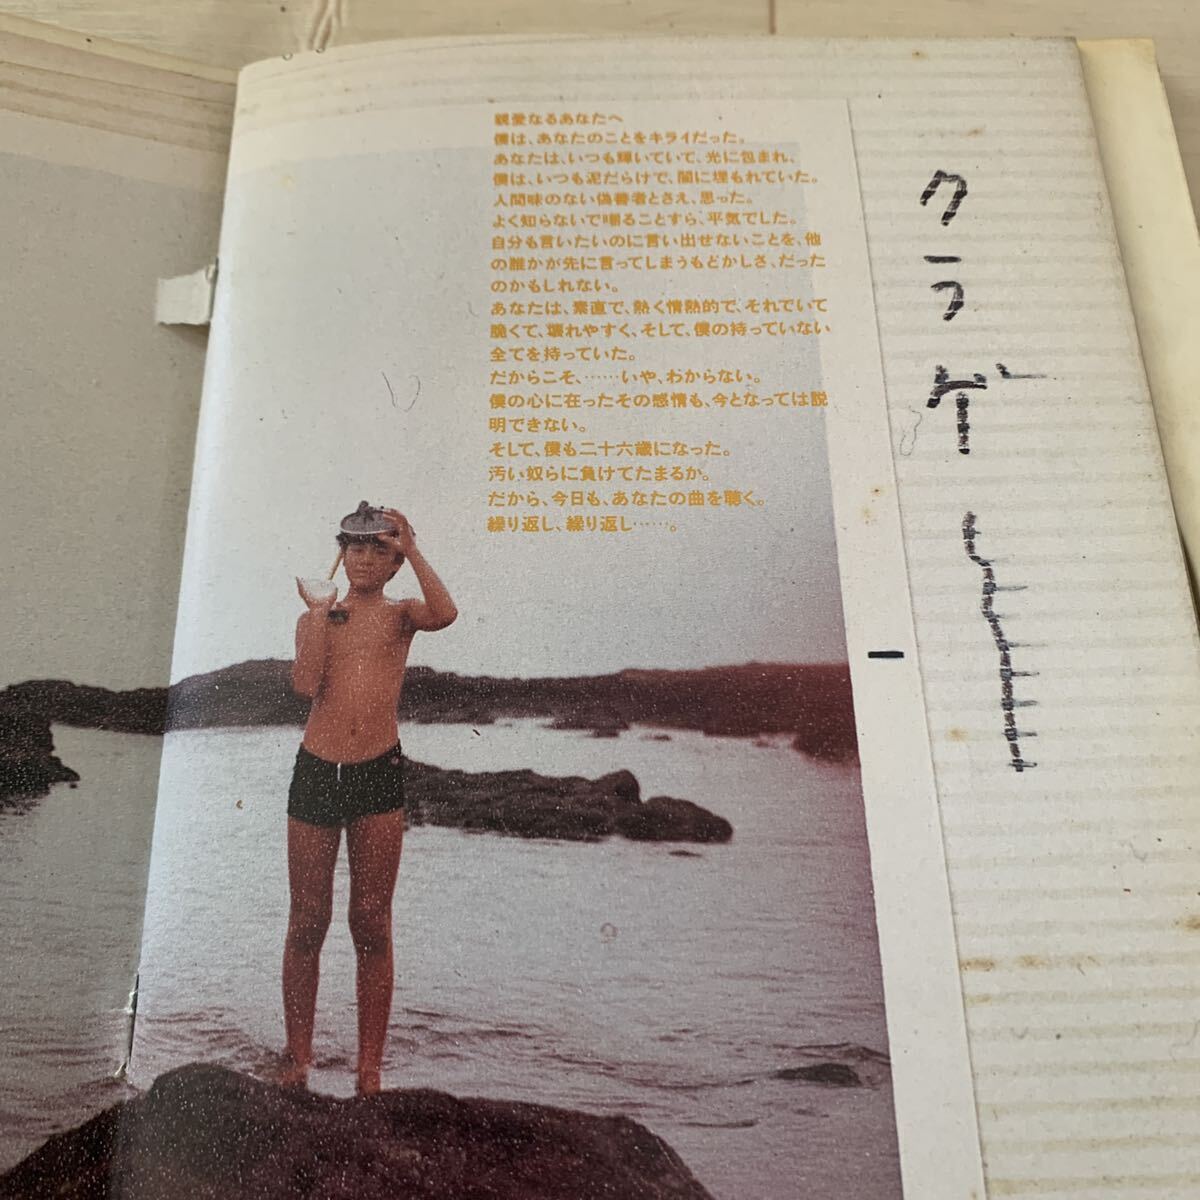 親愛なるあなたへ
僕は、あなたのことをキライだった。
あなたは、いつも輝いていて、光に包まれ、
僕は、いつも泥だらけで、闇に埋もれていた。
人間味のない偽善者とさえ、思った。
よく知らないで嘲ることすら、平気でした。
自分も言いたいのに言い出せないことを、他
の誰かが先に言ってしまうもどかしさ、だった
のかもしれない。
あなたは、素直で、熱く情熱的で、それでいて
脆くて、壊れやすく、そして、僕の持っていない
全てを持っていた。
だからこそ、……いや、わからない。
僕の心に在ったその感情も、今となっては説
明できない。
そして、僕も二十六歳になった。
汚い奴らに負けてたまるか。
だから、今日も、あなたの曲を聴く。
繰り返し、繰り返し……。
クラゲ